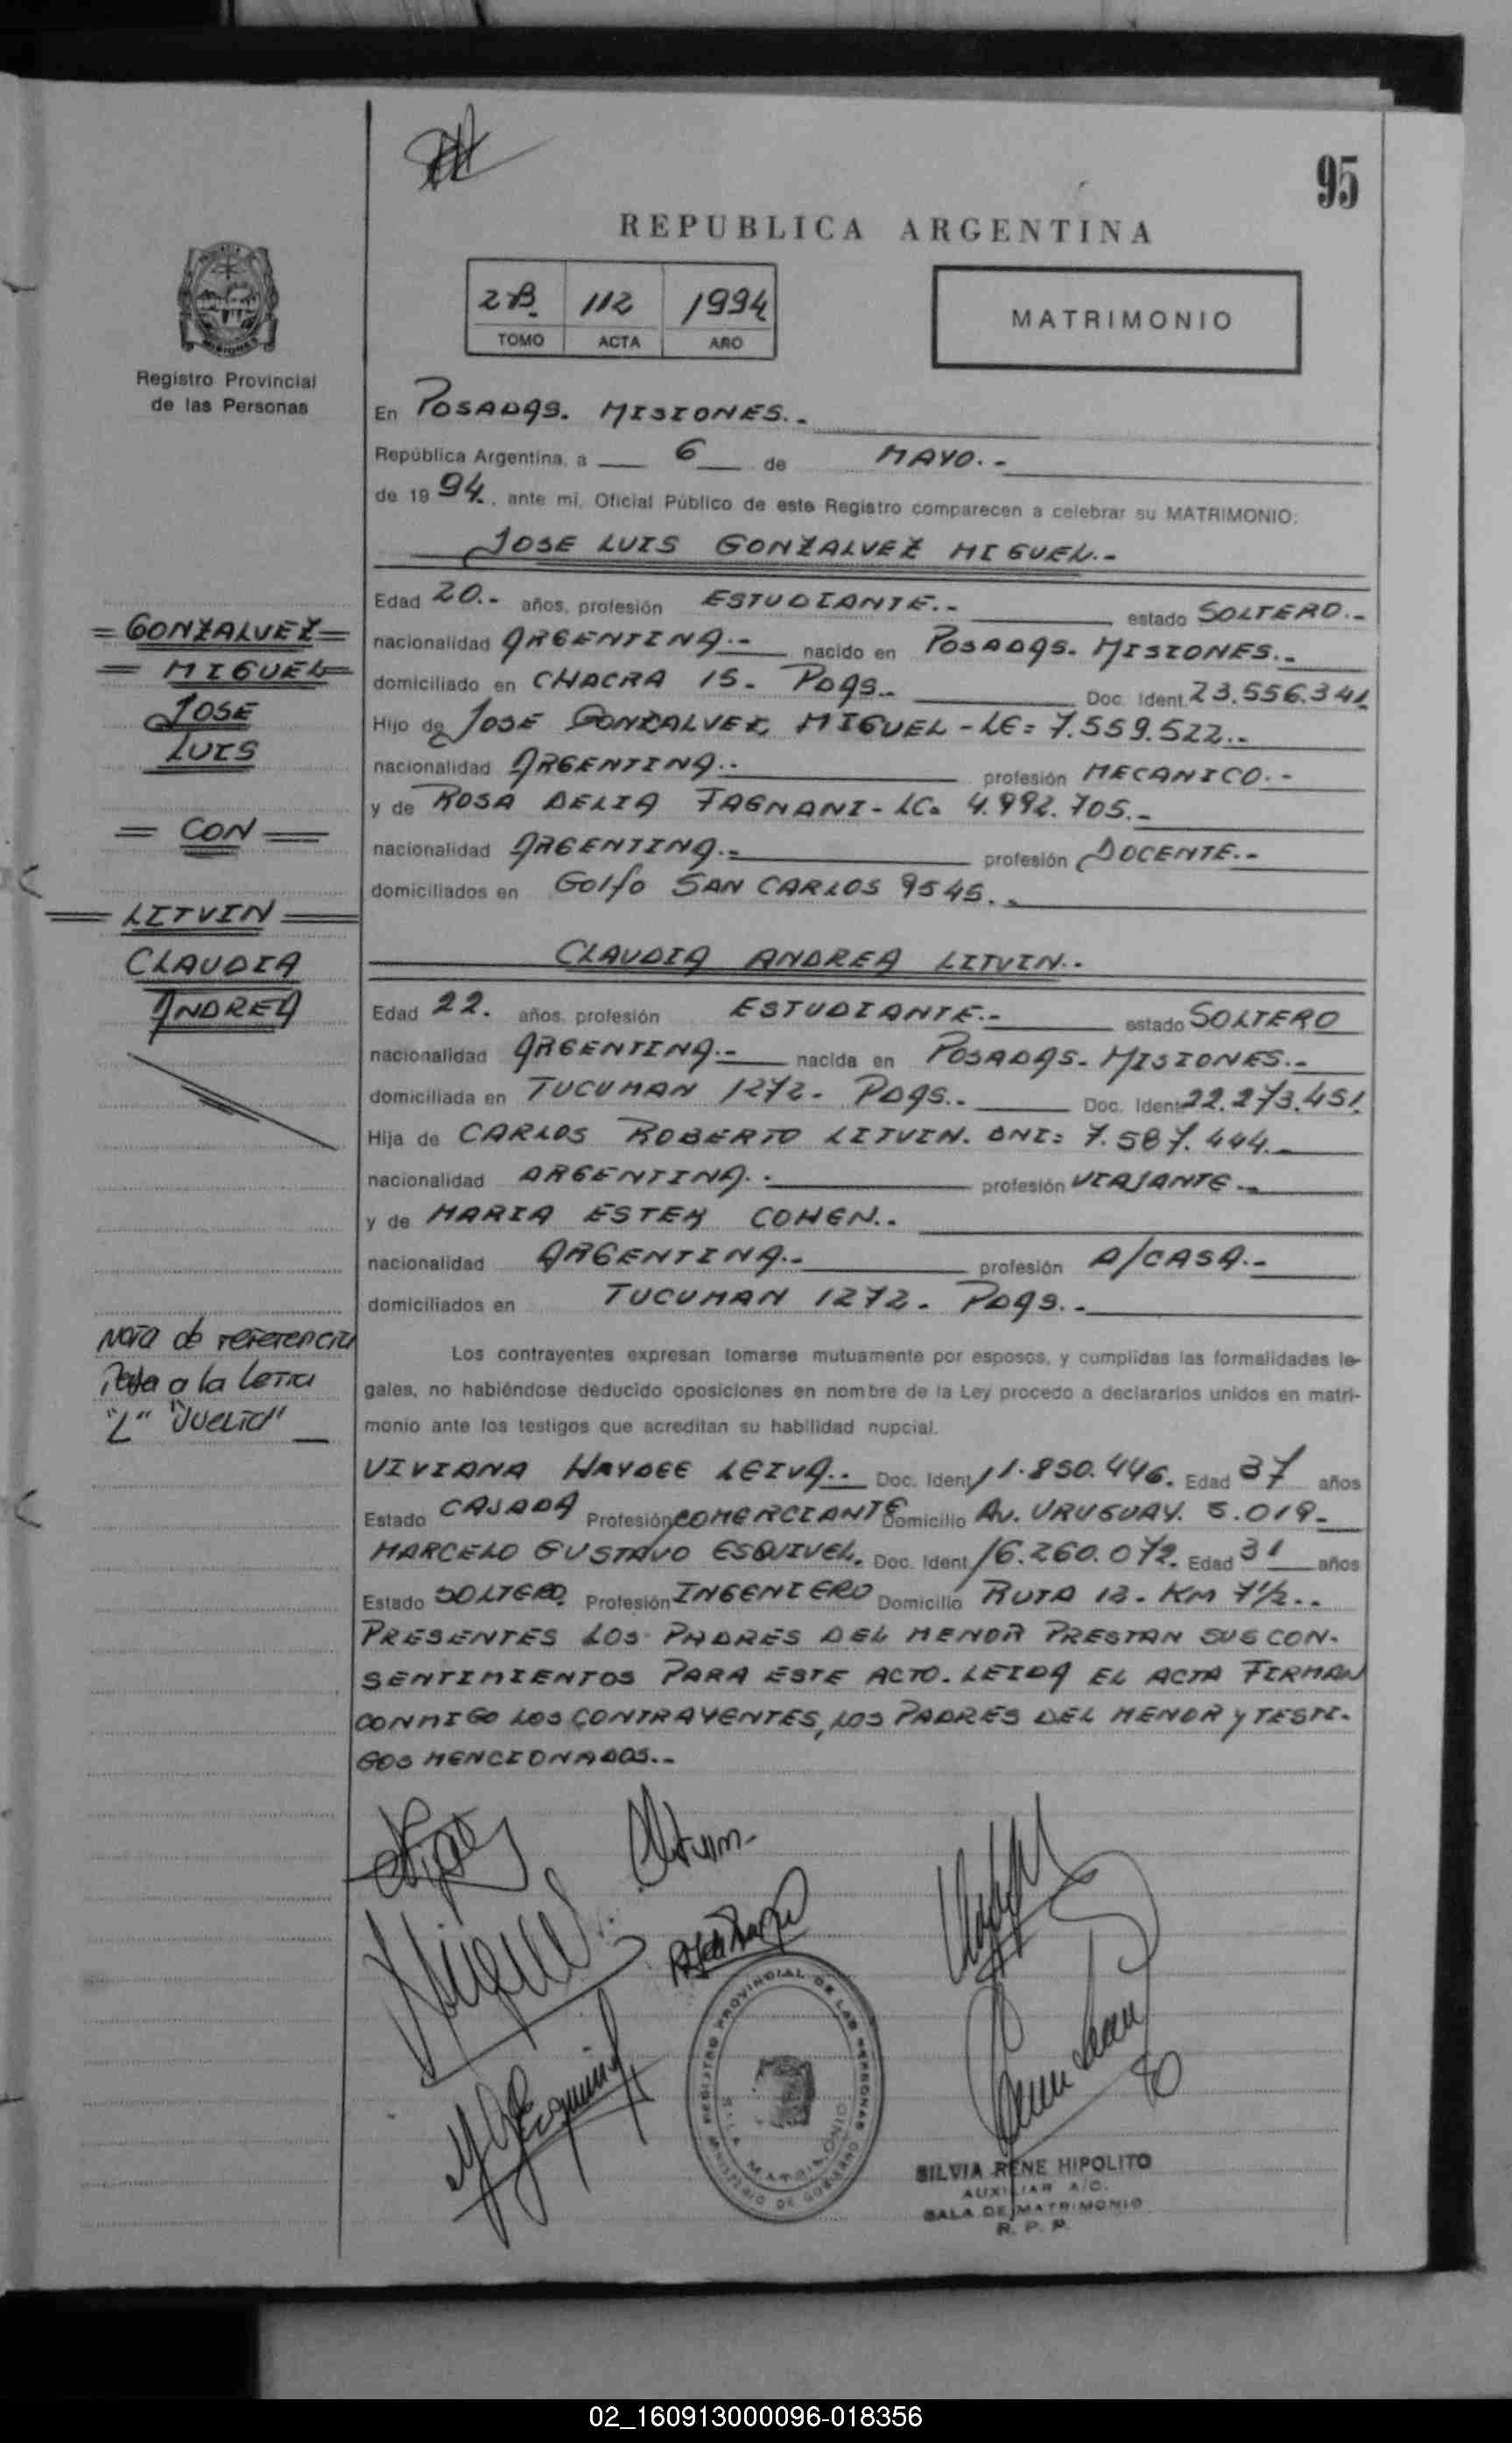 95
REPUBLICA ARGENTINA
2B. 112 1994
TOMO ACTA AÑO
MATRIMONIO
Registro Provincial
de las Personas
En POSADAS. MISIONES.-
República Argentina, a 6 de MAYO.-
de 1994., ante mí, Oficial Público de este Registro comparecen a celebrar su MATRIMONIO:
JOSE LUIS GONZALVEZ MIGUEL.-
Edad 20.- años, profesión ESTUDIANTE.- estado SOLTERO.-
nacionalidad ARGENTINA.- nacido en POSADAS. MISIONES.-
domiciliado en CHACRA 15. PDAS.. Doc. Ident. 23.556.341
Hijo de JOSE GONZALVEZ MIGUEL - LE= 7.559.522.-
nacionalidad ARGENTINA.. profesión MECANICO.-
y de ROSA DELIA FAGNANI - LC= 4.992.705.-
nacionalidad ARGENTINA.- profesión DOCENTE.-
domiciliados en GOLFO SAN CARLOS 9545..
CLAUDIA ANDREA LITVIN..
Edad 22. años, profesión ESTUDIANTE.- estado SOLTERO
nacionalidad ARGENTINA.- nacida en POSADAS. MISIONES.-
domiciliada en TUCUMAN 1272. PDAS.. Doc. Ident. 22.273.451.
Hija de CARLOS ROBERTO LITVIN. DNI: 7.587.444.-
nacionalidad ARGENTINA.. profesión VIAJANTE.-
y de MARIA ESTER COHEN..
nacionalidad ARGENTINA.- profesión A/CASA.-
domiciliados en TUCUMAN 1272. PDAS..
Los contrayentes expresan tomarse mutuamente por esposos, y cumplidas las formalidades le-
gales, no habiéndose deducido oposiciones en nombre de la Ley procedo a declararlos unidos en matri-
monio ante los testigos que acreditan su habilidad nupcial.
VIVIANA HAYDEE LEIVA.. Doc. Ident. 11.850.446. Edad 37 años
Estado CASADA Profesión COMERCIANTE Domicilio AV. URUGUAY. 5.019.-
MARCELO GUSTAVO ESQUIVEL. Doc. Ident. 16.260.072. Edad 31 años
Estado SOLTERO. Profesión INGENIERO Domicilio RUTA 12. KM 7 1/2..
PRESENTES LOS PADRES DEL MENOR PRESTAN SUS CON-
SENTIMIENTOS PARA ESTE ACTO. LEIDA EL ACTA FIRMAN
CONMIGO LOS CONTRAYENTES, LOS PADRES DEL MENOR Y TESTI-
GOS MENCIONADOS..
=GONZALVEZ=
=MIGUEL=
JOSE
LUIS
=CON=
=LITVIN=
CLAUDIA
ANDREA
Nota de referencia
Pasa a la Letra
"L" "Vuelta"
REGISTRO PROVINCIAL DE LAS PERSONAS
MINISTERIO DE GOBIERNO
SALA MATRIMONIO
SILVIA RENE HIPOLITO
AUXILIAR A/C.
SALA DE MATRIMONIO
R. P. P.
02_160913000096-018356